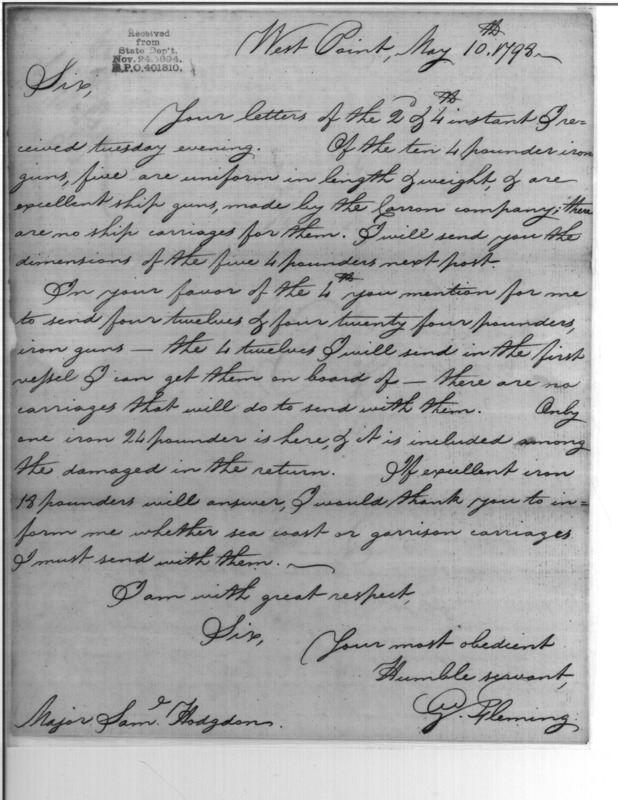 Received
from
State Dep't.
Nov. 24, 1894.
R.P.O. 401810.
West Point, May 10.th 1798.
Sir,
Your letters of the 2d & 4th instant I re=
ceived tuesday evening. Of the ten 4 pounder iron
guns, five are uniform in length & weight, & are
excellent ship guns, made by the Carron company; there
are no ship carriages for them. I will send you the
dimensions of the five 4 pounders next post.
In your favor of the 4th you mention for me
to send four twelves & four twenty four pounders,
iron guns — the 4 twelves I will send in the first
vessel I can get them on board of — there are no
carriages that will do to send with them. Only
one iron 24 pounder is here, & it is included among
the damaged in the return. If excellent iron
18 pounders will answer, I would thank you to in=
form me whether sea coast or garrison carriages
I must send with them. —
I am with great respect,
Sir,
Your most obedient
Humble servant,
G. Fleming.
Major Sam.l Hodgdon.